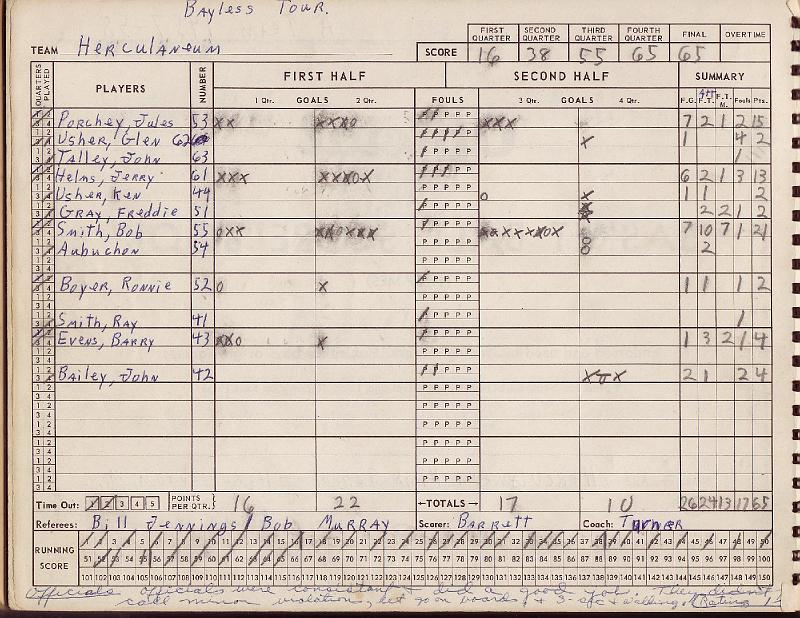 Bayless Tour.
FIRST QUARTER SECOND QUARTER THIRD QUARTER FOURTH QUARTER FINAL OVERTIME
TEAM Herculaneum SCORE 16 38 55 65 65
QUARTERS PLAYED PLAYERS NUMBER FIRST HALF SECOND HALF SUMMARY
1 Qtr. GOALS 2 Qtr. FOULS 3 Qtr. GOALS 4 Qtr. F.G. Att F.T. F.T. M. Fouls Pts.
Porchey, Jules 53 xx xxxo P P P xxx 7 2 1 2 15
Usher, Glen 62 P x 1 4 2
Talley, John 63 P P P P 1
Helms, Jerry 61 xxx xxxox P P 6 2 1 3 13
Usher, Ken 44 P P P P P o x 1 1 2
Gray, Freddie 51 P P P P 2 2 1 2
Smith, Bob 55 oxx P P P P 7 10 7 1 21
Aubuchon 54 P P P P P o o 2
Boyer, Ronnie 52 o x P P P P 1 1 1 2
Smith, Ray 41 P P P P 1
Evens, Barry 43 xxo x P P P 1 3 2 1 4
Bailey, John 42 P P P xox 2 1 2 4
Time Out: 1 2 3 4 5 POINTS PER QTR. 16 22 ←TOTALS→ 17 10 26 24 13 17 65
Referees: Bill Jennings / Bob Murray Scorer: Barrett Coach: Turner
1 2 3 4 5 6 7 8 9 10 11 12 13 14 15 16 17 18 19 20 21 22 23 24 25 26 27 28 29 30 31 32 33 34 35 36 37 38 39 40 41 42 43 44 45 46 47 48 49 50
RUNNING SCORE 51 52 53 54 55 56 57 58 59 60 61 62 63 64 65 66 67 68 69 70 71 72 73 74 75 76 77 78 79 80 81 82 83 84 85 86 87 88 89 90 91 92 93 94 95 96 97 98 99 100
101 102 103 104 105 106 107 108 109 110 111 112 113 114 115 116 117 118 119 120 121 122 123 124 125 126 127 128 129 130 131 132 133 134 135 136 137 138 139 140 141 142 143 144 145 146 147 148 149 150
Officials Officials were consistant & did a good job. They didn't
call minor violations, let go on boards, & 3 sec & walking. (Rating 1